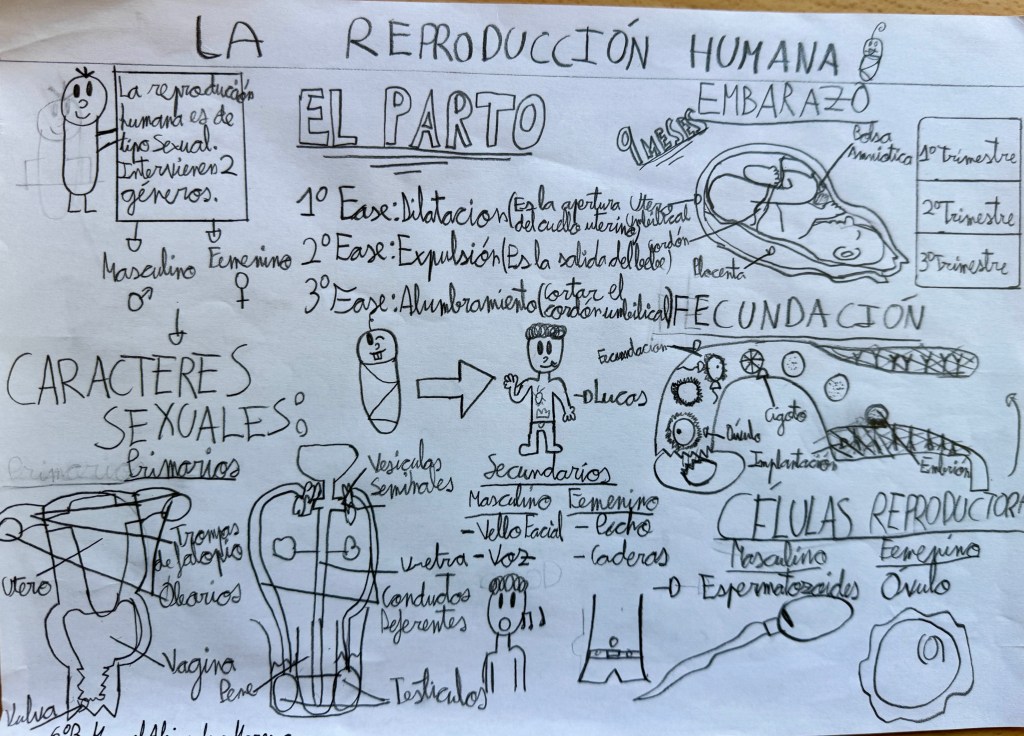 LA REPRODUCCIÓN HUMANA
La reproducción
humana es de
tipo sexual.
Intervienen 2
géneros.
Masculino Femenino
♂ ♀
EL PARTO
1º Fase: Dilatacion (Es la apertura
del cuello uterino)
2º Fase: Expulsión (Es la salida del bebé)
3º Fase: Alumbramiento (Cortar el
cordón umbilical)
Lucas
EMBARAZO
9 MESES
Bolsa
Amniótica
Utero
Cordón
umbilical
Placenta
1º Trimestre
2º Trimestre
3º Trimestre
FECUNDACIÓN
Fecundacion
Cigoto
Óvulo
Implantación
Embrión
CARACTERES
SEXUALES:
Primarios
Primarios
Utero
Trompas
de falopio
Obarios
Vagina
Vulva
Vesiculas
Seminales
Uretra
Conductos
Deferentes
Pene
Testiculos
Secundarios
Masculino Femenino
- Vello Facial - Pecho
- Voz - Caderas
CÉLULAS REPRODUCTORA
Masculino Femenino
Espermatozoides Óvulo
6ºB